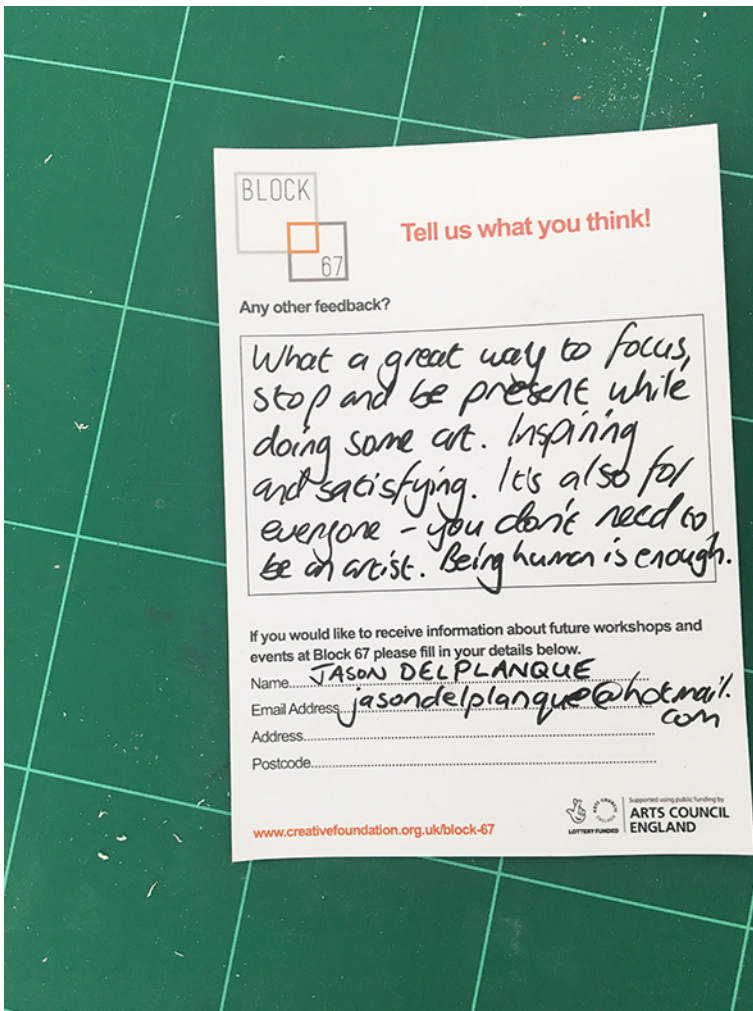 BLOCK
67
Tell us what you think!
Any other feedback?
What a great way to focus,
stop and be present while
doing some art. Inspiring
and satisfying. It's also for
everyone - you don't need to
be an artist. Being human is enough.
If you would like to receive information about future workshops and
events at Block 67 please fill in your details below.
Name.... JASON DELPLANQUE
Email Address... jasondelplanque@hotmail.
com
Address....
Postcode....
www.creativefoundation.org.uk/block-67
LOTTERY FUNDED
ARTS COUNCIL
ENGLAND
Supported using public funding by
ARTS COUNCIL
ENGLAND